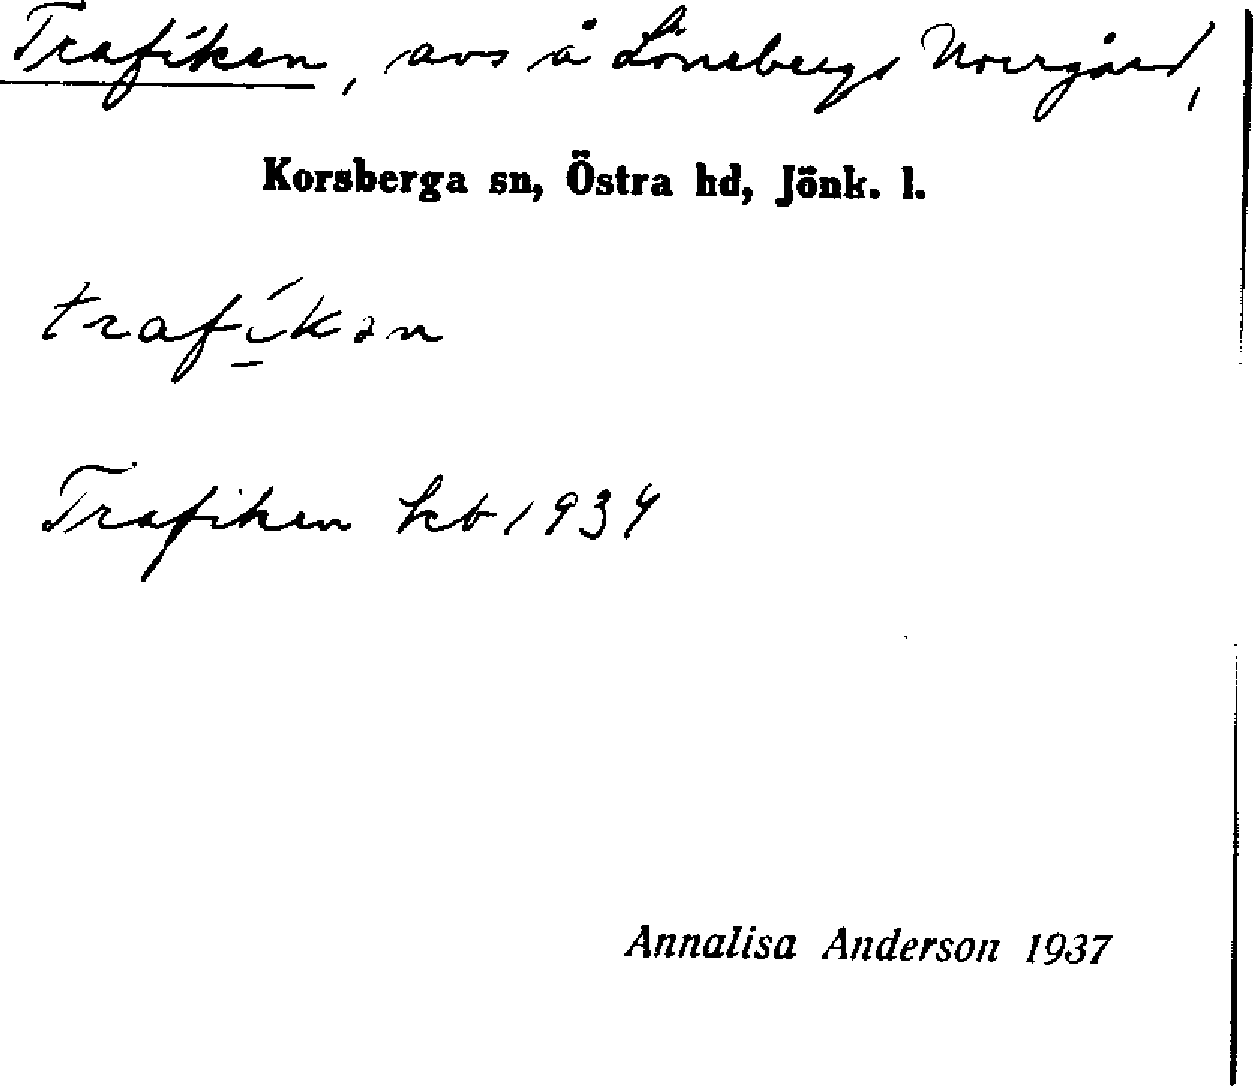 Trafiken, avs å Lönebergs Norrgård,
Korsberga sn, Östra hd, Jönk. l.
trafí̱kən
Trafiken kb 1934
Annalisa Anderson 1937